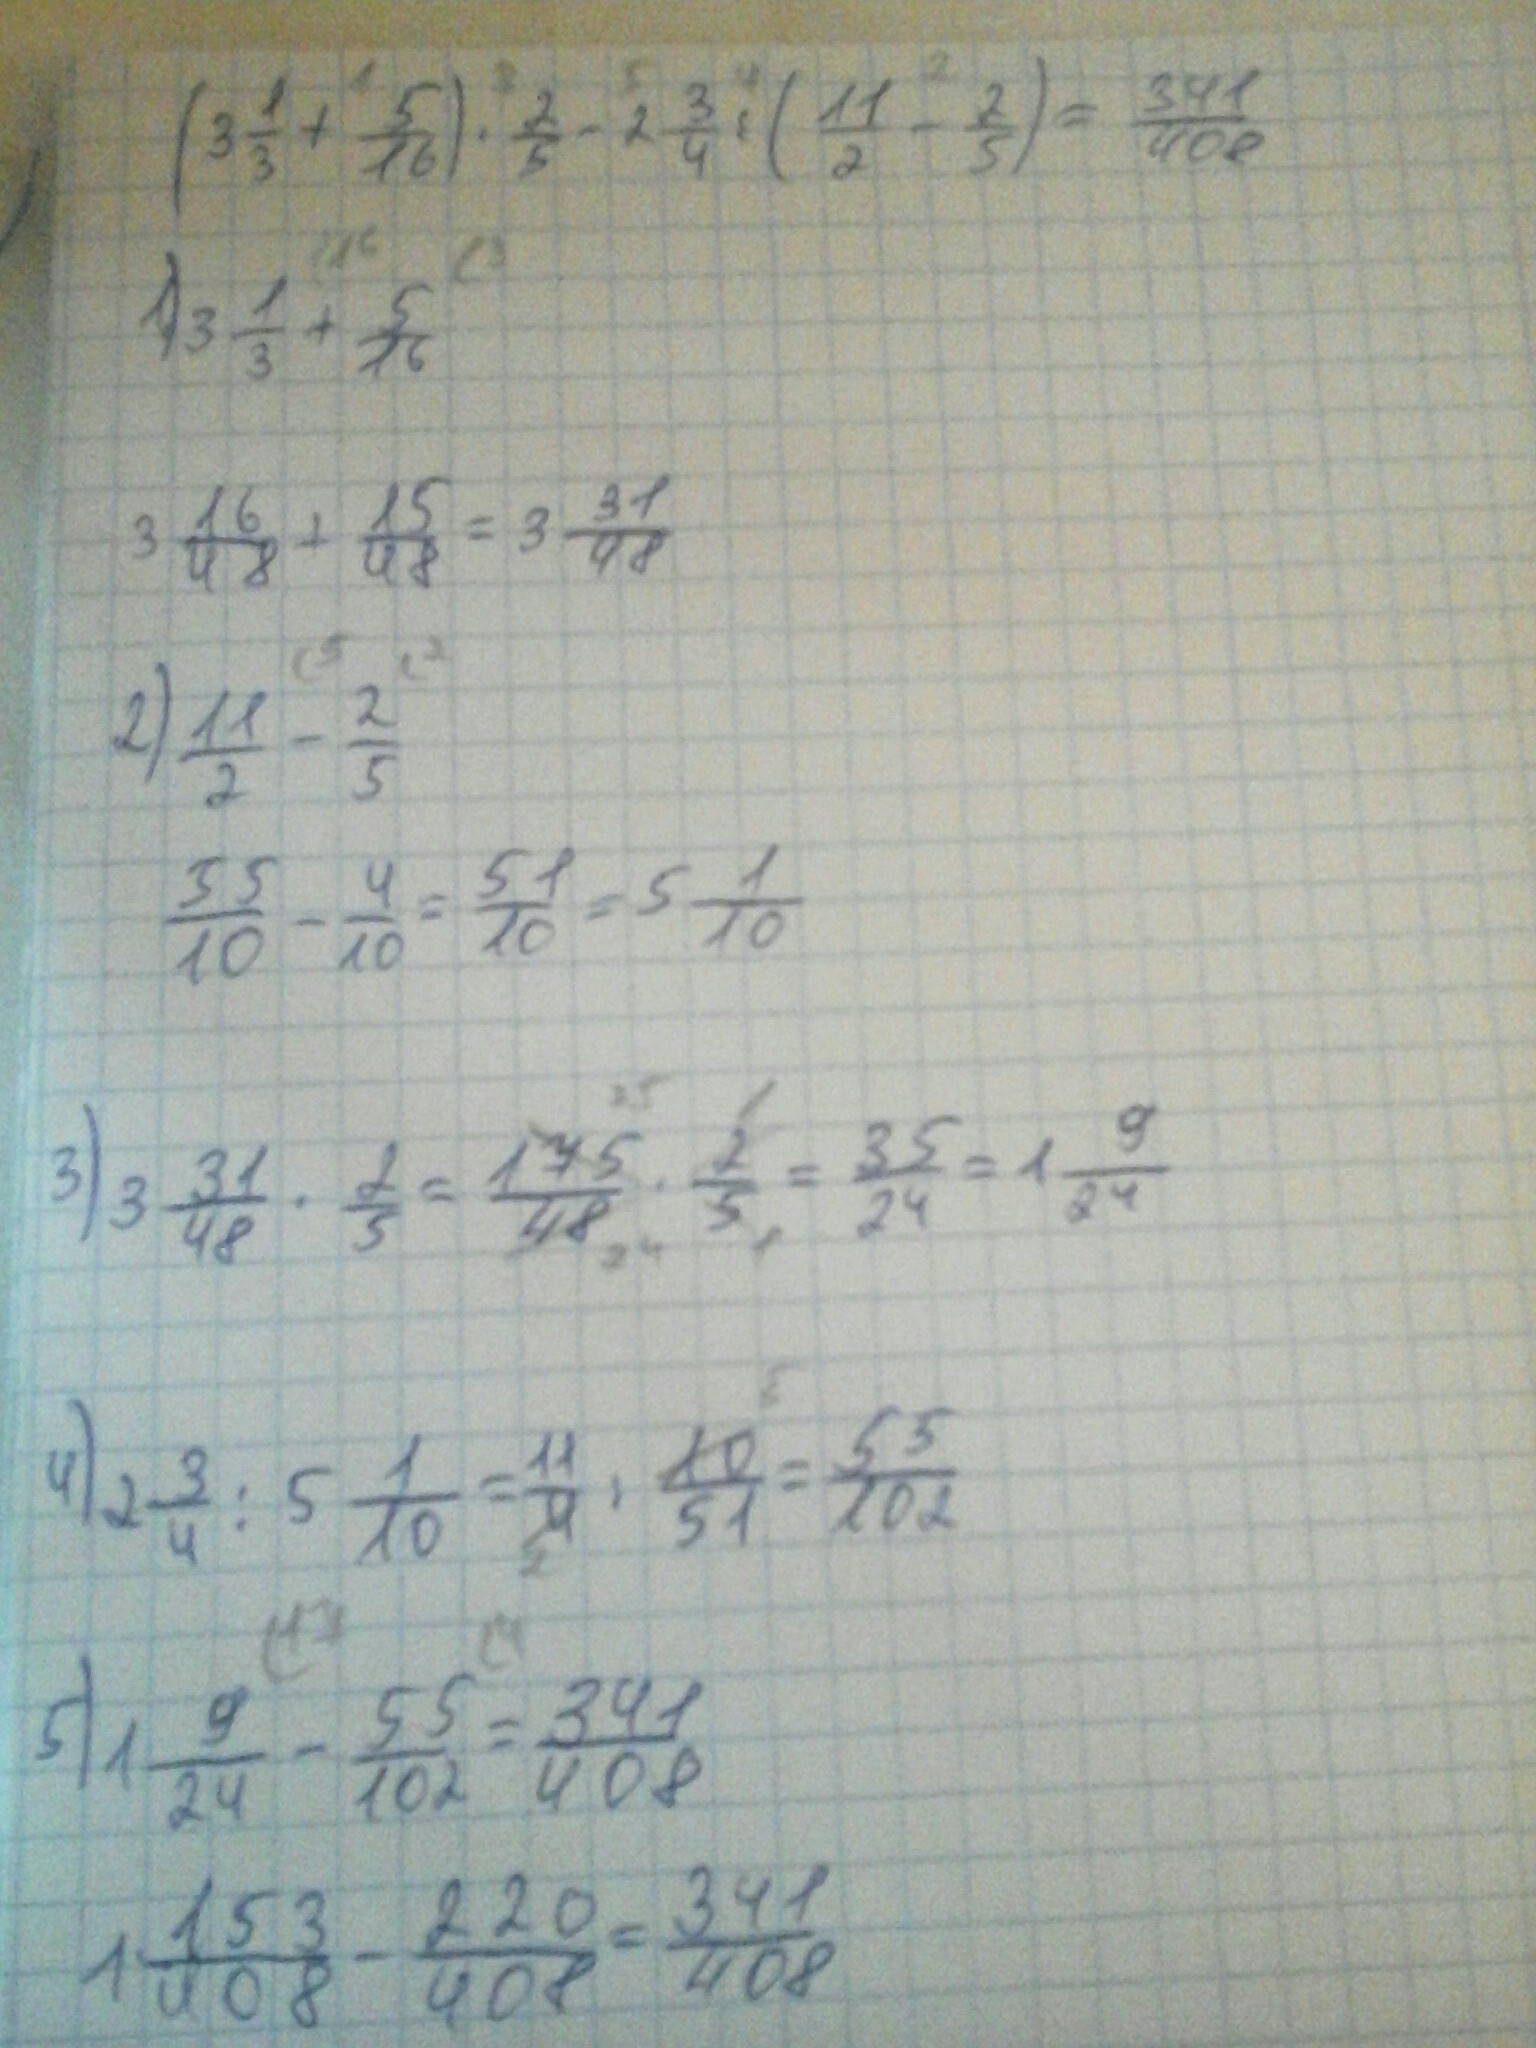 (3 1/3 + 5/16) · 2/5 - 2 3/4 : (11/2 - 2/5) = 341/408
1) 3 1/3 + 5/16
3 16/48 + 15/48 = 3 31/48
2) 11/2 - 2/5
55/10 - 4/10 = 51/10 = 5 1/10
3) 3 31/48 · 2/5 = 175/48 · 2/5 = 35/24 = 1 9/24
4) 2 3/4 : 5 1/10 = 11/4 · 10/51 = 55/102
5) 1 9/24 - 55/102 = 341/408
1 153/408 - 220/408 = 341/408